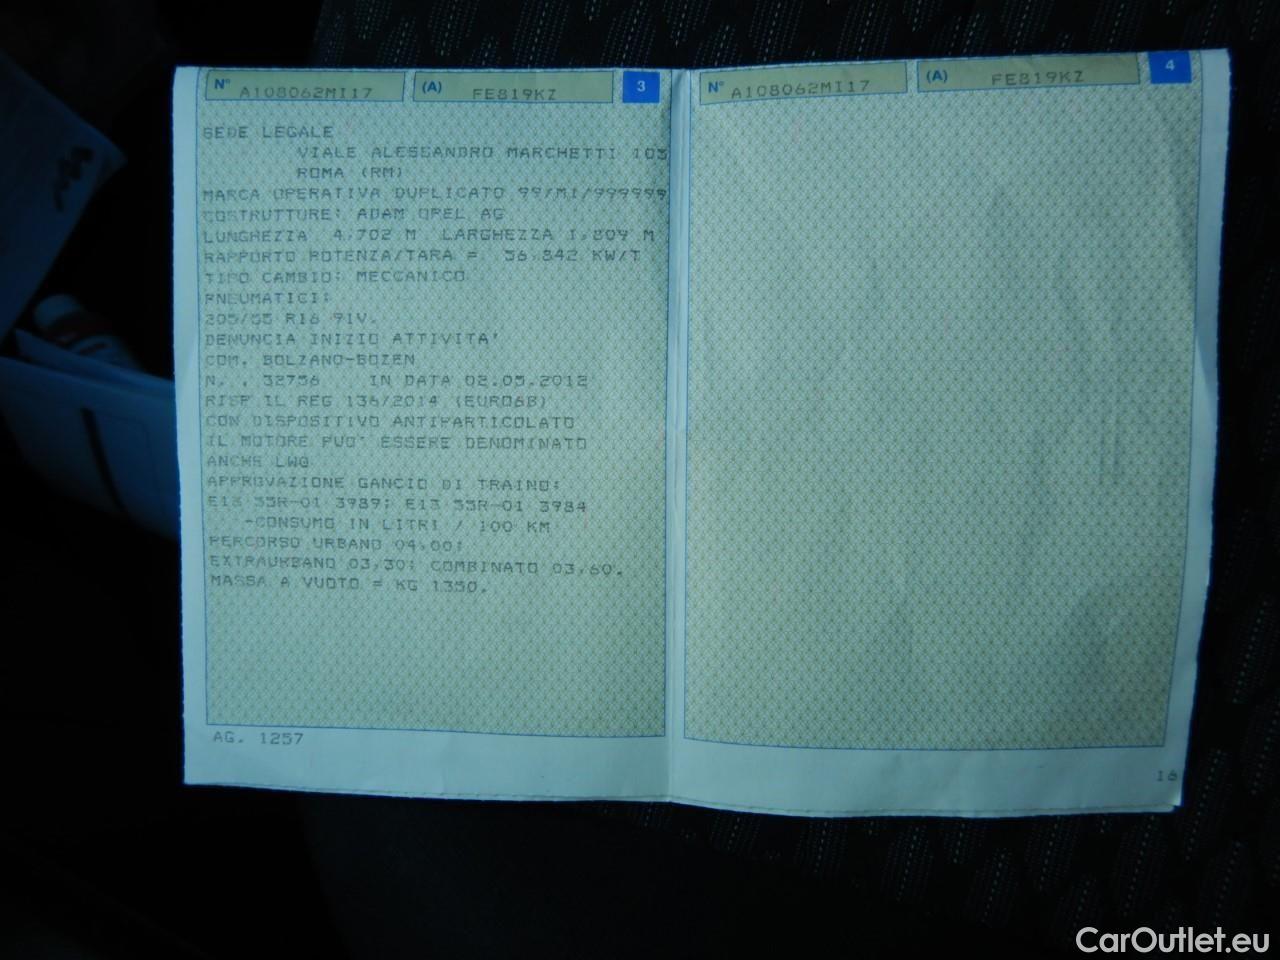 N° A108062MI17 (A) FE819KZ 3
SEDE LEGALE
VIALE ALESSANDRO MARCHETTI 105
ROMA (RM)
MARCA OPERATIVA DUPLICATO 99/MI/999999
COSTRUTTORE: ADAM OPEL AG
LUNGHEZZA 4,702 M LARGHEZZA 1,809 M
RAPPORTO POTENZA/TARA = 56,842 KW/T
TIPO CAMBIO: MECCANICO
PNEUMATICI:
205/55 R16 91V.
DENUNCIA INIZIO ATTIVITA'
COM. BOLZANO-BOZEN
N. . 32756 IN DATA 02.05.2012
RISP IL REG 136/2014 (EURO6B)
CON DISPOSITIVO ANTIPARTICOLATO
IL MOTORE PUO' ESSERE DENOMINATO
ANCHE LWQ
APPROVAZIONE GANCIO DI TRAINO:
E13 55R-01 3989; E13 55R-01 3984
-CONSUMO IN LITRI / 100 KM
PERCORSO URBANO 04,00;
EXTRAURBANO 03,30; COMBINATO 03,60.
MASSA A VUOTO = KG 1350.
AG. 1257
N° A108062MI17 (A) FE819KZ 4
16
CarOutlet.eu